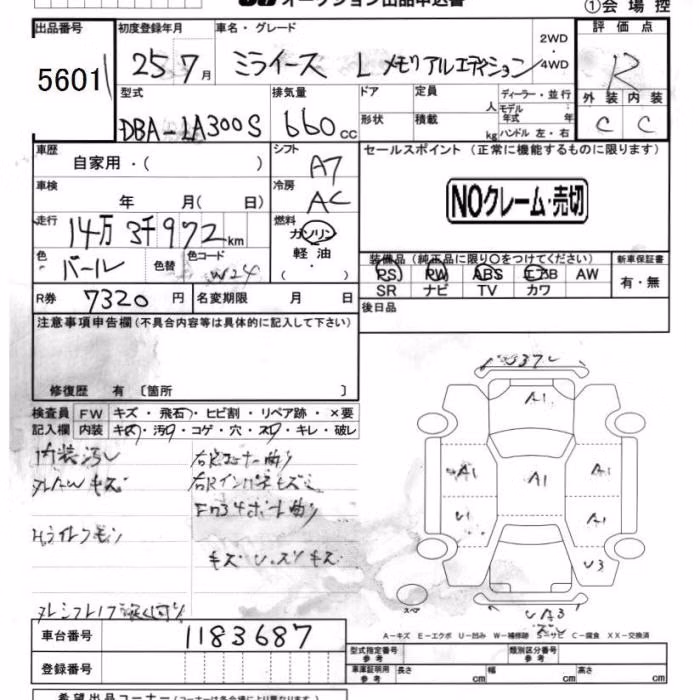 オークション出品申込書
①会場控
出品番号 初度登録年月 車名・グレード 評価点
5601 25 7月 ミライース L メモリアルエディション 2WD 4WD R
型式 排気量 ドア 定員 人 ディーラー・並行 外装 内装
モデル年式 年
DBA-LA300S 660cc 形状 積載 kg ハンドル 左・右 C C
車歴 シフト セールスポイント (正常に機能するものに限ります)
自家用・( ) A7
車検 冷房
年 月( 日) AC NOクレーム・売切
走行 燃料
14万3千972km ガソリン
色 色替 色コード 軽油 装備品 (純正品に限り〇をつけてください) 新車保証書
パール W24 ( ・ ) PS PW ABS エアB AW 有・無
R券 7320円 名変期限 月 日 SR ナビ TV カワ
注意事項申告欄(不具合内容等は具体的に記入して下さい) 後日品
修復歴 有 〔箇所 〕
検査員 FW キズ・飛石・ヒビ割・リペア跡・×要
記入欄 内装 キズ・汚れ・コゲ・穴・スレ・キレ・破レ
内装汚レ
キズ
A1
A1 A1 A1
U1 A1
U3
スペア
A-キズ E-エクボ U-凹み W-補修跡 S-サビ C-腐食 XX-交換済
車台番号 1183687 型式指定番号 参考 類別区分番号 参考
登録番号 車庫証明用 参考 長さ cm 幅 cm 高さ cm
希望出品コーナー